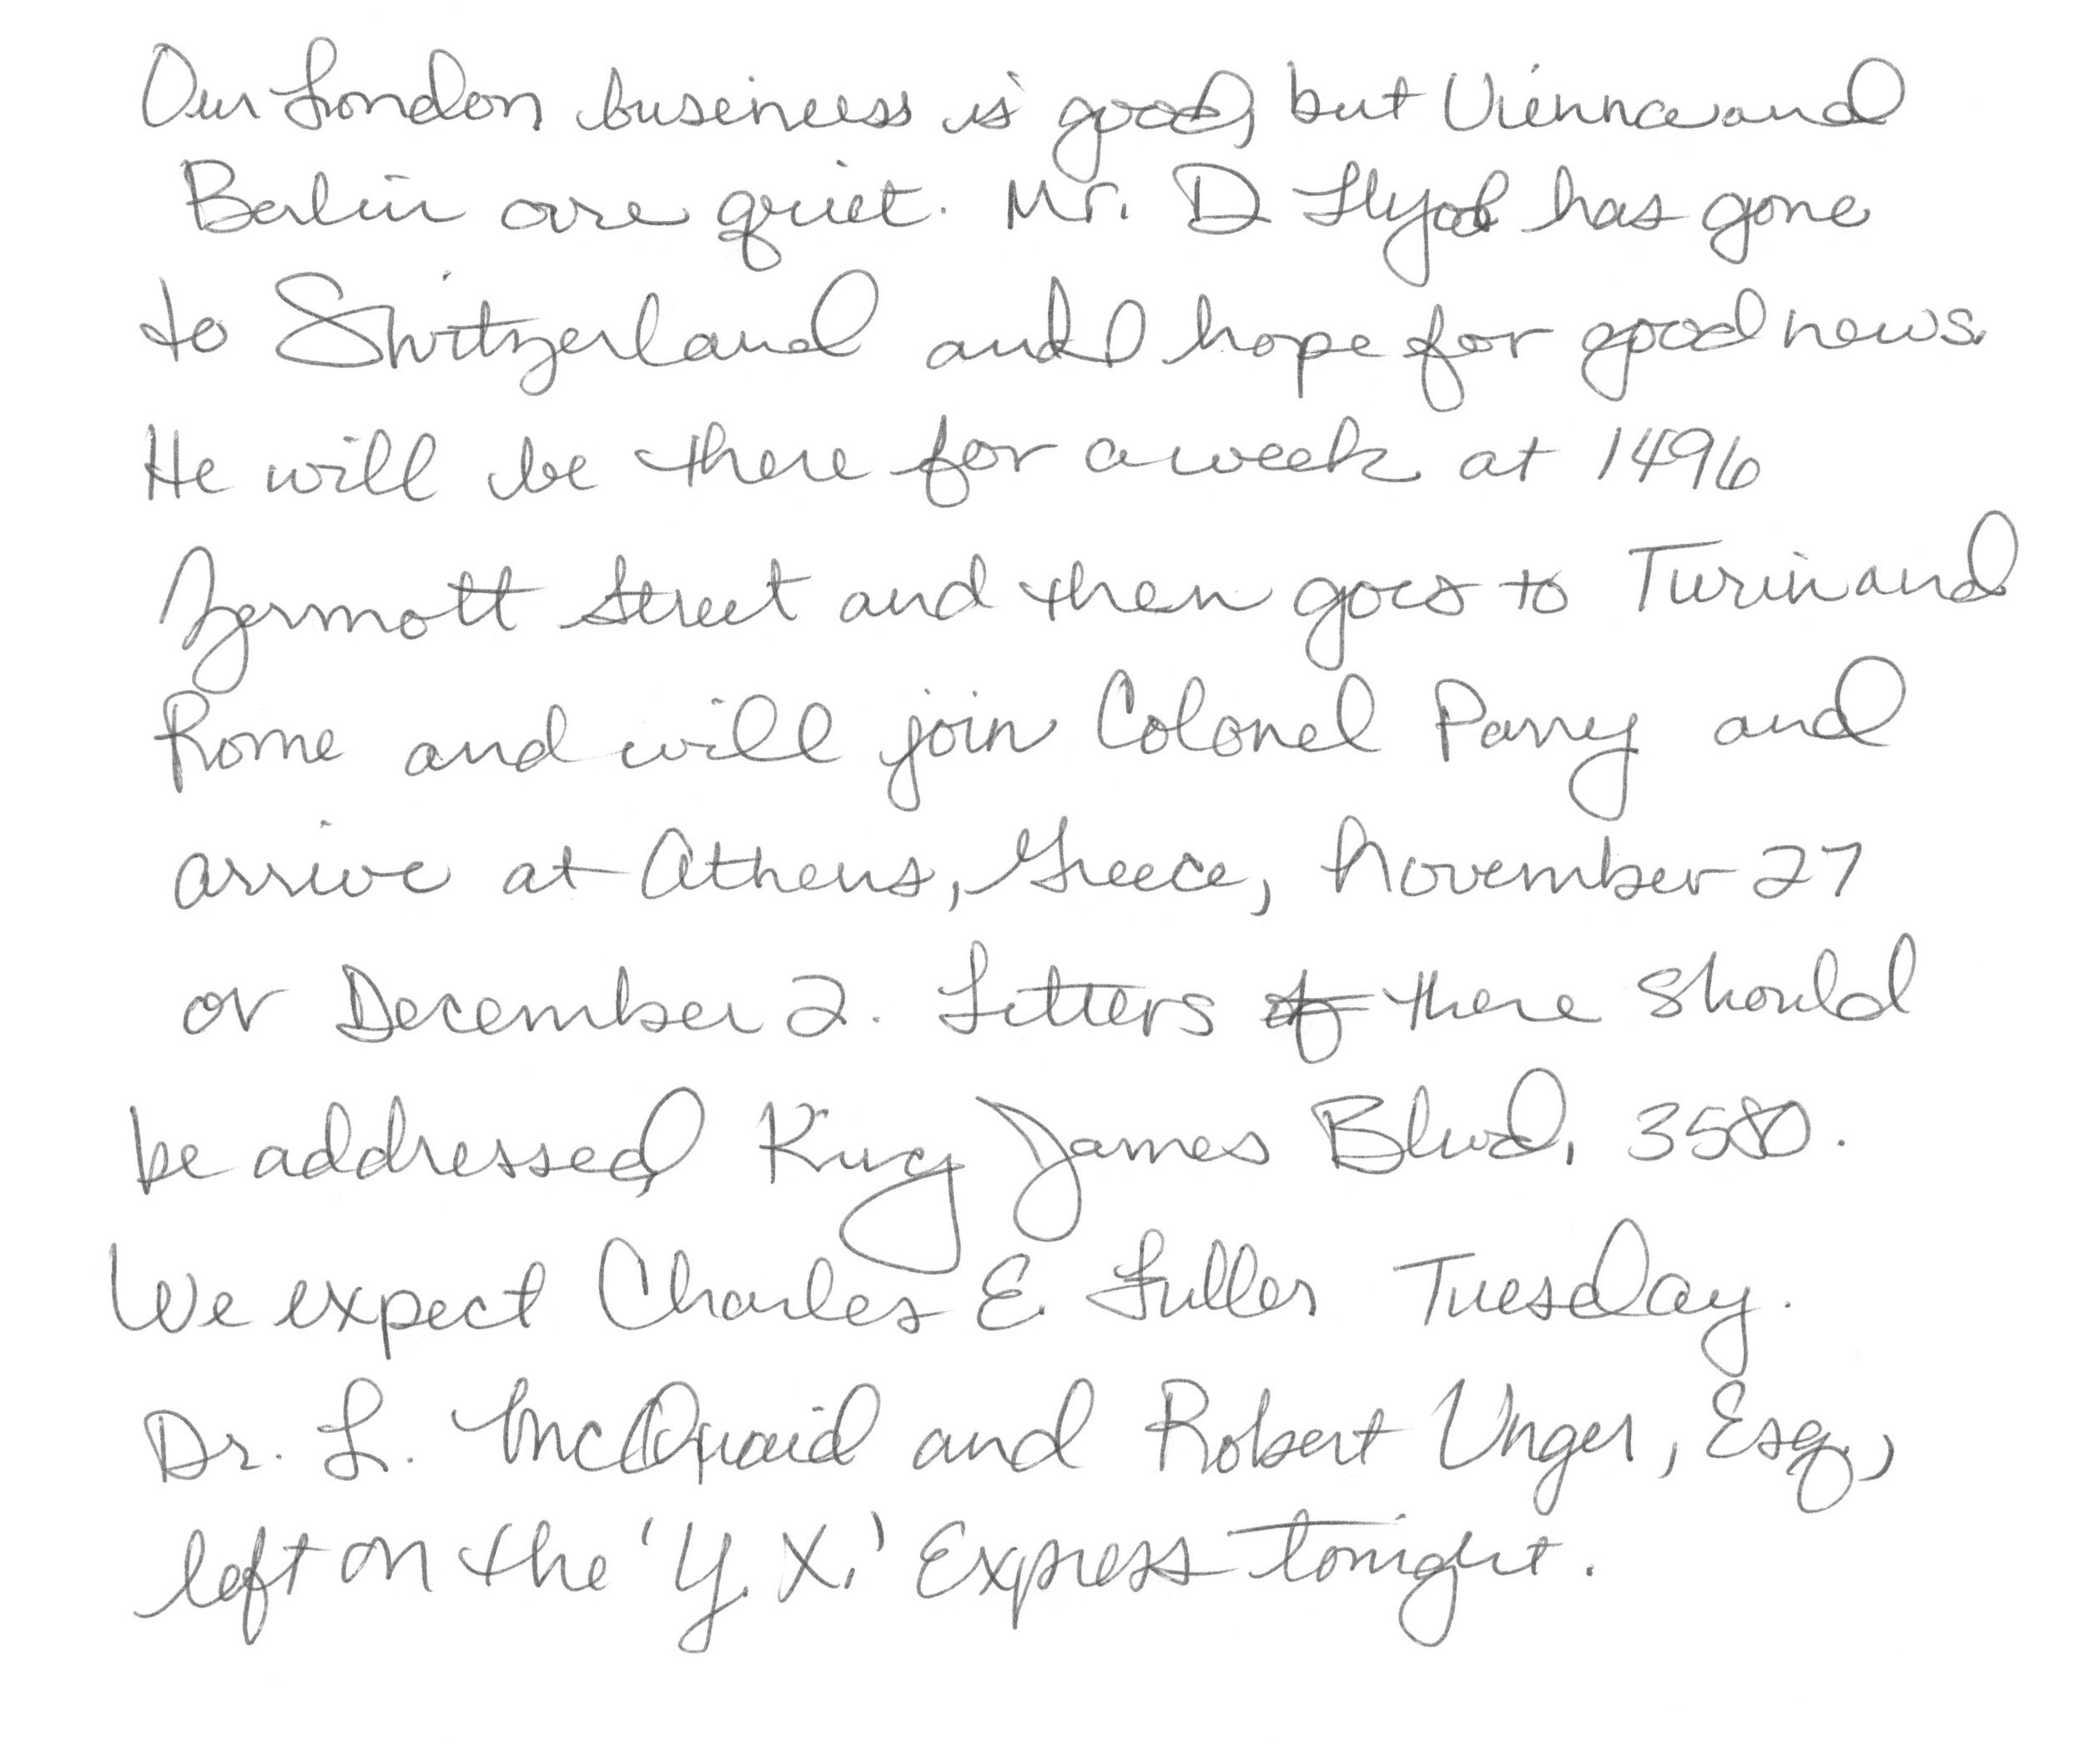 Our London business is good, but Vienna and
Berlin are quiet. Mr. D has gone
to Switzerland and I hope for good news.
He will be there for a week at 1496
Zermott Street and then goes to Turin and
Rome and will join Colonel Parry and
arrive at Athens, Greece, November 27
or December 2. Letters there should
be addressed King James Blvd. 3580.
We expect Charles E. Fuller Tuesday.
Dr. L. McQuaid and Robert Unger, Esq.,
left on the 'Y. X.' Express tonight.